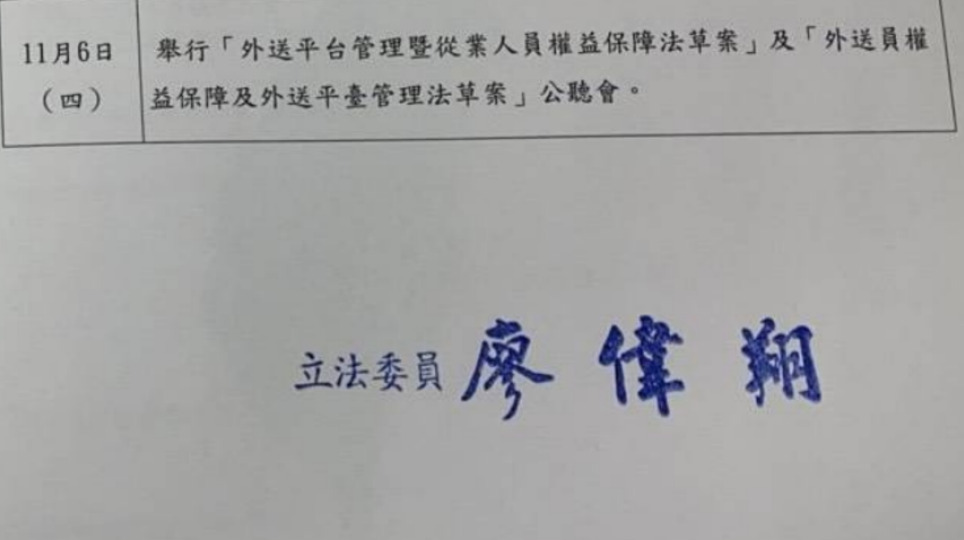 11月6日
（四）
舉行「外送平台管理暨從業人員權益保障法草案」及「外送員權
益保障及外送平臺管理法草案」公聽會。
立法委員 廖偉翔